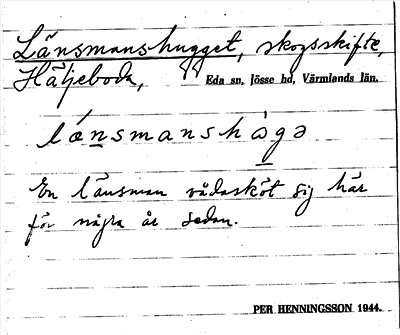 Länsmanshugget, skogsskifte,
Häljeboda, Eda sn, Jösse hd, Värmlands län.
lǽnsmanshȧgə
En länsman vådasköt sig här
för några år sedan.
PER HENNINGSSON 1944.